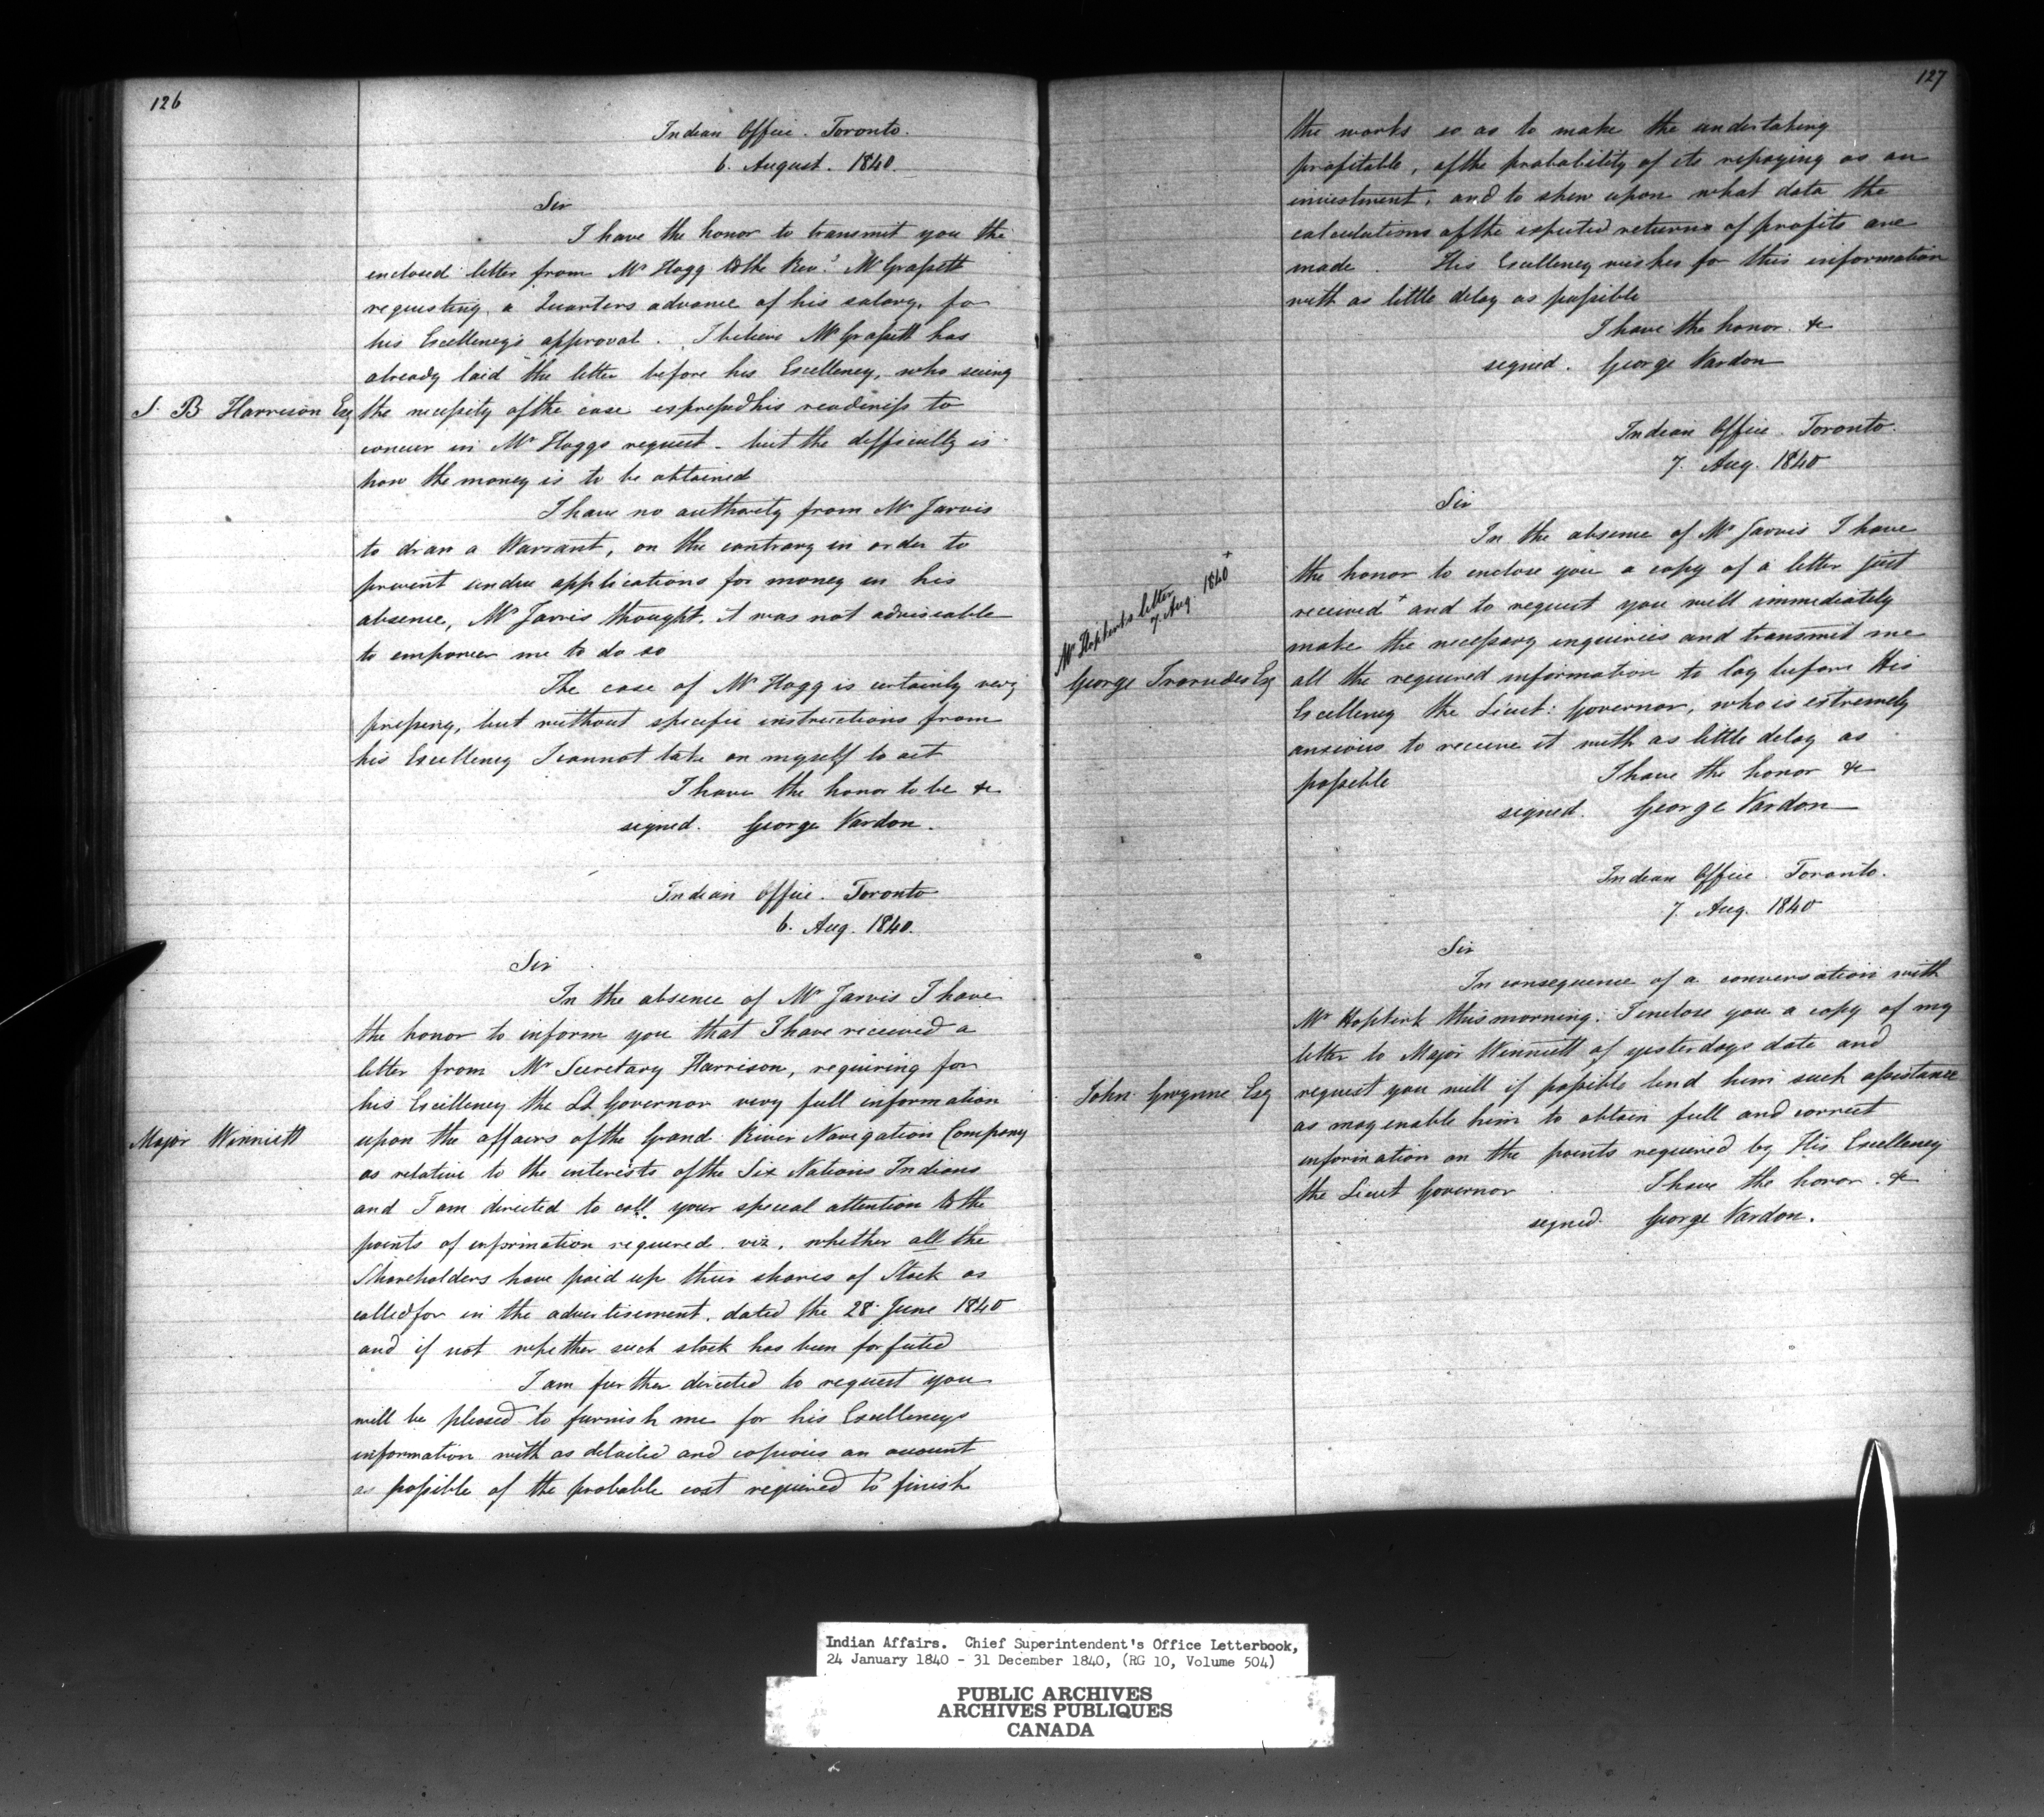 126
Indian Office. Toronto.
6. August. 1840.
Sir
I have the honor to transmit you the
enclosed letter from Mr Hogg to the Revd Mr Grasett
requesting a Quarters advance of his salary, for
his Excellency's approval. I believe Mr Grasett has
already laid the letter before his Excellency, who seeing
S. B Harrison Esq
the necessity of the case expressed his readiness to
concur in Mr Hoggs request - but the difficulty is
how the money is to be obtained
I have no authority from Mr Jarvis
to draw a Warrant, on the contrary in order to
prevent undue applications for money in his
absence, Mr Jarvis thought it was not adviseable
to empower me to do so
The case of Mr Hogg is certainly very
pressing, but without specific instructions from
his Excellency I cannot take on myself to act
I have the honor to be &c
signed. George Vardon.
Indian Office. Toronto
6. Aug. 1840.
Sir
In the absence of Mr Jarvis I have
the honor to inform you that I have received a
letter from Mr Secretary Harrison, requiring for
his Excellency the Lt Governor very full information
Major Winniett
upon the affairs of the Grand River Navigation Company
as relative to the interests of the Six Nations Indians
and I am directed to call your special attention to the
points of information required. viz. whether all the
Shareholders have paid up their shares of Stock as
called for in the advertisement. dated the 28 June 1840
and if not whether such stock has been forfeited
I am further directed to request you
will be pleased to furnish me for his Excellencys
information with as detailed and copious an account
as possible of the probable cost required to finish
127
the works so as to make the undertaking
profitable, of the probability of its repaying as an
investment, and to shew upon what data the
calculations of the expected returns of profits are
made. His Excellency wishes for this information
with as little delay as possible
I have the honor. &c
signed. George Vardon
Indian Office. Toronto.
7. Aug. 1840
Sir
In the absence of Mr Jarvis I have
the honor to enclose you a copy of a letter just
received + and to request you will immediately
Mr Hopkirks letter
7. Aug. 1840 +
make the necessary enquiries and transmit me
George Esq
all the required information to lay before His
Excellency the Lieut: Governor, who is extremely
anxious to receive it with as little delay as
possible
I have the honor &c
signed. George Vardon
Indian Office. Toronto.
7. Aug. 1840
Sir
In consequence of a conversation with
Mr Hopkirk this morning. I enclose you a copy of my
letter to Major Winniett of yesterdays date and
John Gwynne Esq
request you will if possible lend him such assistance
as may enable him to obtain full and correct
information on the points required by His Excellency
the Lieut Governor
I have the honor. &c
signed. George Vardon.
Indian Affairs. Chief Superintendent's Office Letterbook,
24 January 1840 - 31 December 1840, (RG 10, Volume 504)
PUBLIC ARCHIVES
ARCHIVES PUBLIQUES
CANADA